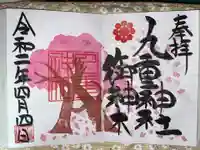 奉拝
九重神社
御神木
令和二年四月四日